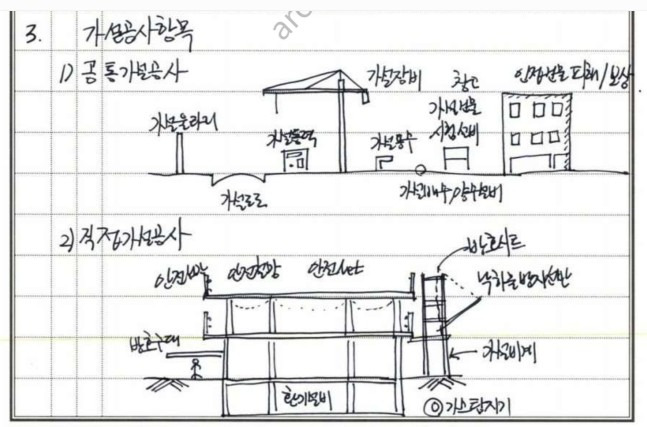 arc
3. 가설공사항목
1) 공통가설공사
가설장비
창고
인접건물피해/보상
가설울타리
가설동력
가설용수
가설건물
시험설비
가설도로
가설배수/양수설비
2) 직접가설공사
보호시트
안전난간
안전망
낙하물방지선반
가설비계
환기설비
가스탐지기